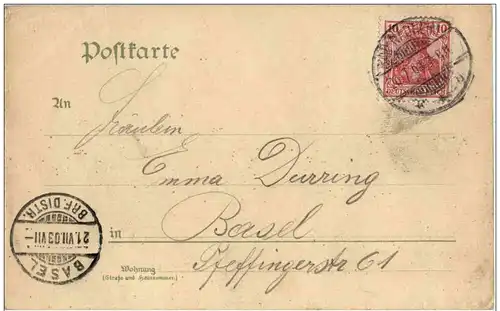 Postkarte
10 10
An
Fräulein
Emma Durring
in Basel
Pfeffingerstr 61
Wohnung
(Straße und Hausnummer)
BASEL
21.VII.03.VII-
BRF. DISTR.